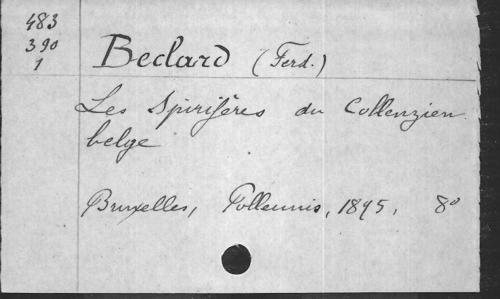 483
390
1
Beclard (Ferd.)
Les Spirifères du Coblenzien
belge
Bruxelles, Polleunis, 1895, 8°